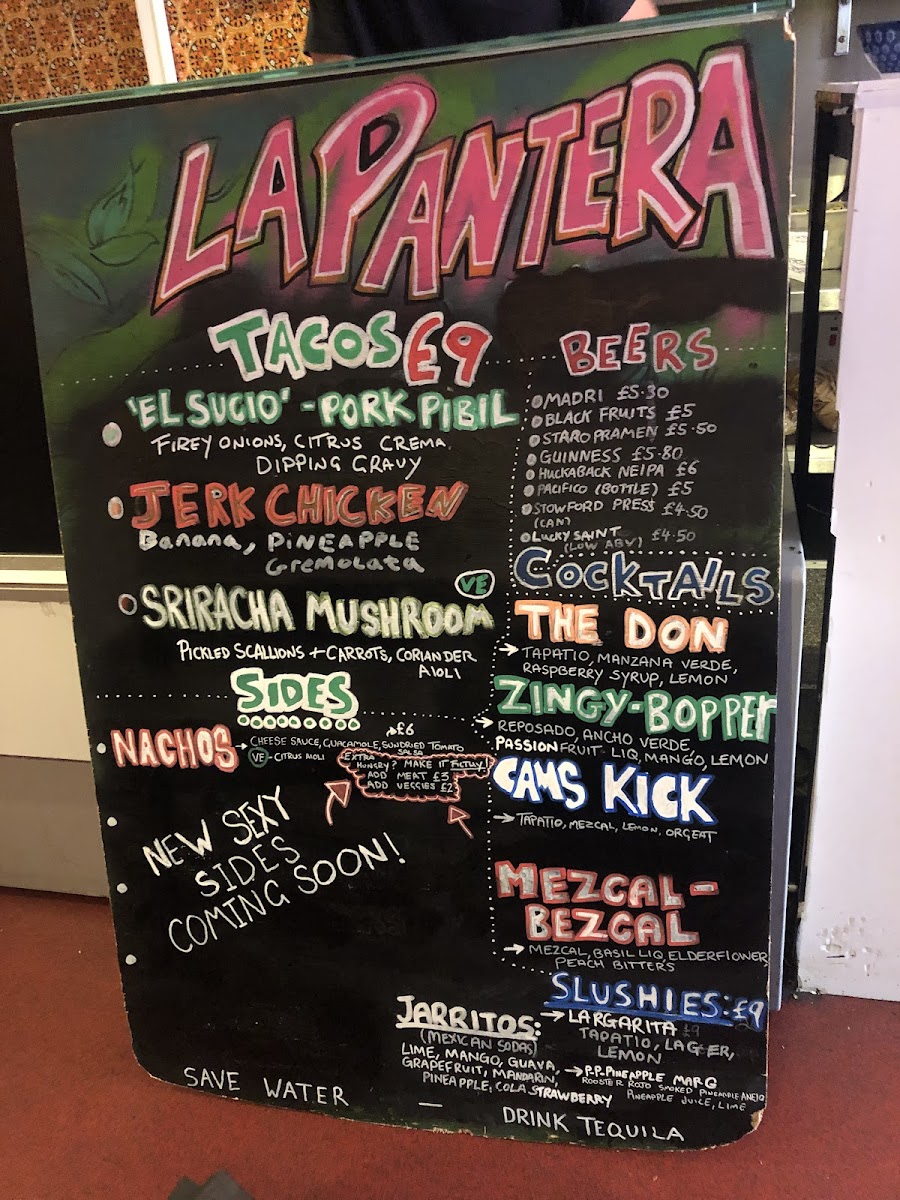 LA PANTERA
TACOS £9
'EL SUCIO' - PORK PIBIL
FIREY ONIONS, CITRUS CREMA.
DIPPING GRAVY
JERK CHICKEN
Banana, PINEAPPLE
Gremolata
VE
SRIRACHA MUSHROOM
PICKLED SCALLIONS + CARROTS, CORIANDER
AIOLI
SIDES
£6
NACHOS → CHEESE SAUCE, GUACAMOLE, SUNDRIED TOMATO
SALSA
VE - CITRUS AIOLI
EXTRA
HUNGRY? MAKE IT FILTHY!
ADD MEAT £3
ADD VEGGIES £2
NEW SEXY
SIDES
COMING SOON!
BEERS
MADRI £5.30
BLACK FRUITS £5
STAROPRAMEN £5.50
GUINNESS £5.80
HUCKABACK NEIPA £6
PACIFICO (BOTTLE) £5
STOWFORD PRESS £4.50
(CAN)
LUCKY SAINT £4.50
(LOW ABV)
COCKTAILS
THE DON
→ TAPATIO, MANZANA VERDE,
RASPBERRY SYRUP, LEMON
ZINGY-BOPPER
→ REPOSADO, ANCHO VERDE,
PASSIONFRUIT LIQ, MANGO, LEMON
CAMS KICK
→ TAPATIO, MEZCAL, LEMON. ORGEAT
MEZCAL-
BEZCAL
→ MEZCAL, BASIL LIQ, ELDERFLOWER,
PEACH BITTERS
SLUSHIES: £9
→ LARGARITA £9
TAPATIO, LAGER,
LEMON
→ P.P. PINEAPPLE MARG
ROOSTER ROJO SMOKED PINEAPPLE ANEJO
PINEAPPLE JUICE, LIME
JARRITOS:
(MEXICAN SODAS)
LIME, MANGO, GUAVA,
GRAPEFRUIT, MANDARIN,
PINEAPPLE, COLA, STRAWBERRY
SAVE WATER — DRINK TEQUILA